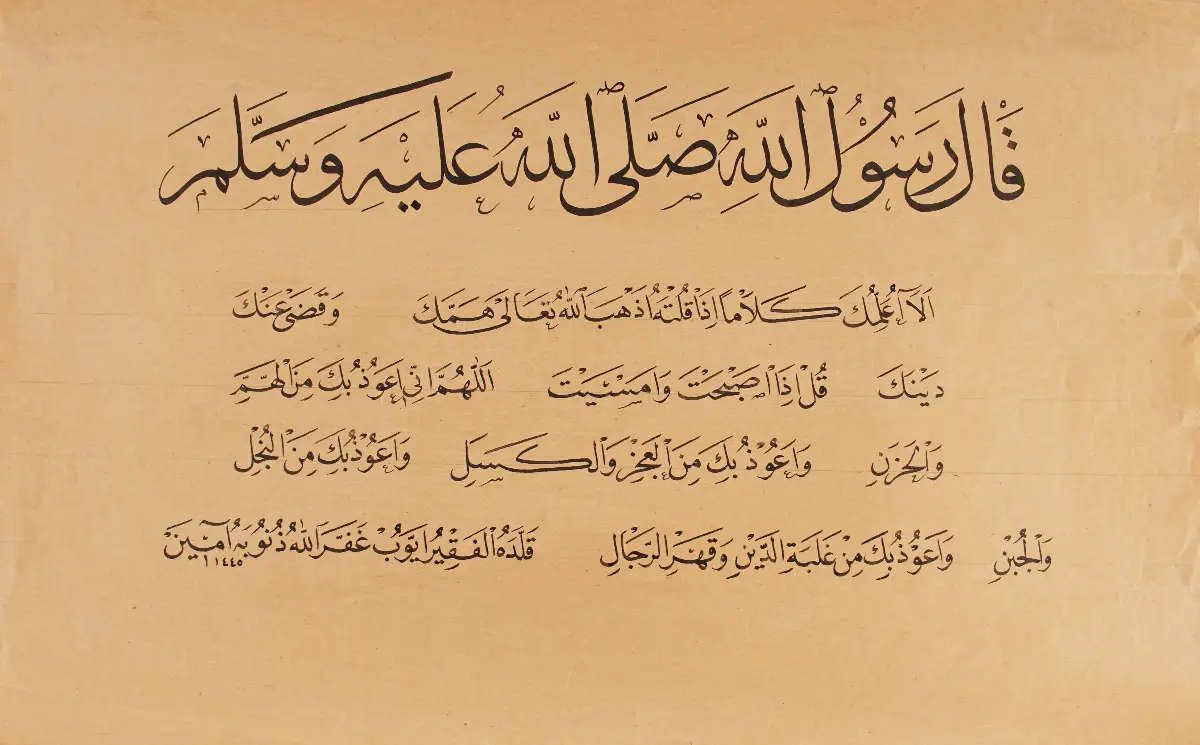 قَالَ رَسُولُ اللهِ صَلَّى اللهُ عَلَيْهِ وَسَلَّمَ
اَلَا اُعَلِّمُكَ كَلَامًا اِذَا قُلْتَهُ اَذْهَبَ اللهُ تَعَالَى هَمَّكَ وَقَضَى عَنْكَ
دَيْنَكَ قُلْ اِذَا اَصْبَحْتَ وَاَمْسَيْتَ اَللّٰهُمَّ اِنِّي اَعُوذُ بِكَ مِنَ الْهَمِّ
وَالْحَزَنِ وَاَعُوذُ بِكَ مِنَ الْعَجْزِ وَالْكَسَلِ وَاَعُوذُ بِكَ مِنَ الْبُخْلِ
وَالْجُبْنِ وَاَعُوذُ بِكَ مِنْ غَلَبَةِ الدَّيْنِ وَقَهْرِ الرِّجَالِ قَلَّدَهُ الْفَقِيرُ اَيُّوبُ غَفَرَ اللهُ ذُنُوبَهُ آمِينَ
١٤٤٥